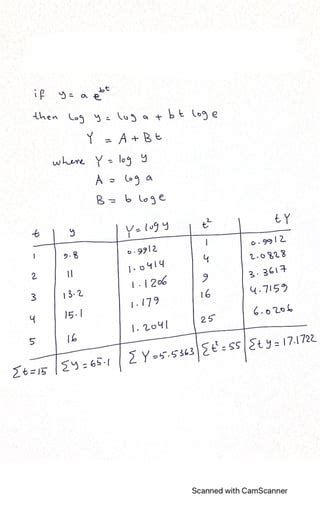 if y = a e^bt
then log y = log a + b t log e
Y = A + B t
where Y = log y
A = log a
B = b log e
t y Y = log y t² t Y
1 9.8 0.9912 1 0.9912
2 11 1.0414 4 2.0828
3 13.2 1.1206 9 3.3617
4 15.1 1.179 16 4.7159
5 16 1.2041 25 6.0206
Σt = 15 Σy = 65.1 ΣY = 5.5363 Σt² = 55 Σty = 17.1722
Scanned with CamScanner